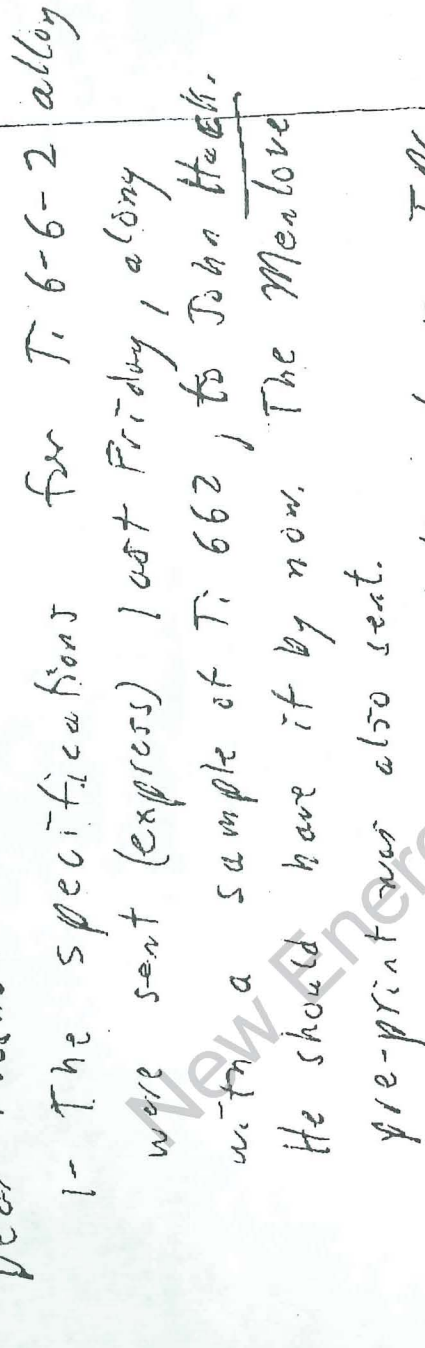 1- The specifications for Ti 6-6-2 alloy
were sent (express) last Friday, along
with a sample of Ti 662, to John
He should have it by now. The Menlove
pre-print was also sent.
New Energ